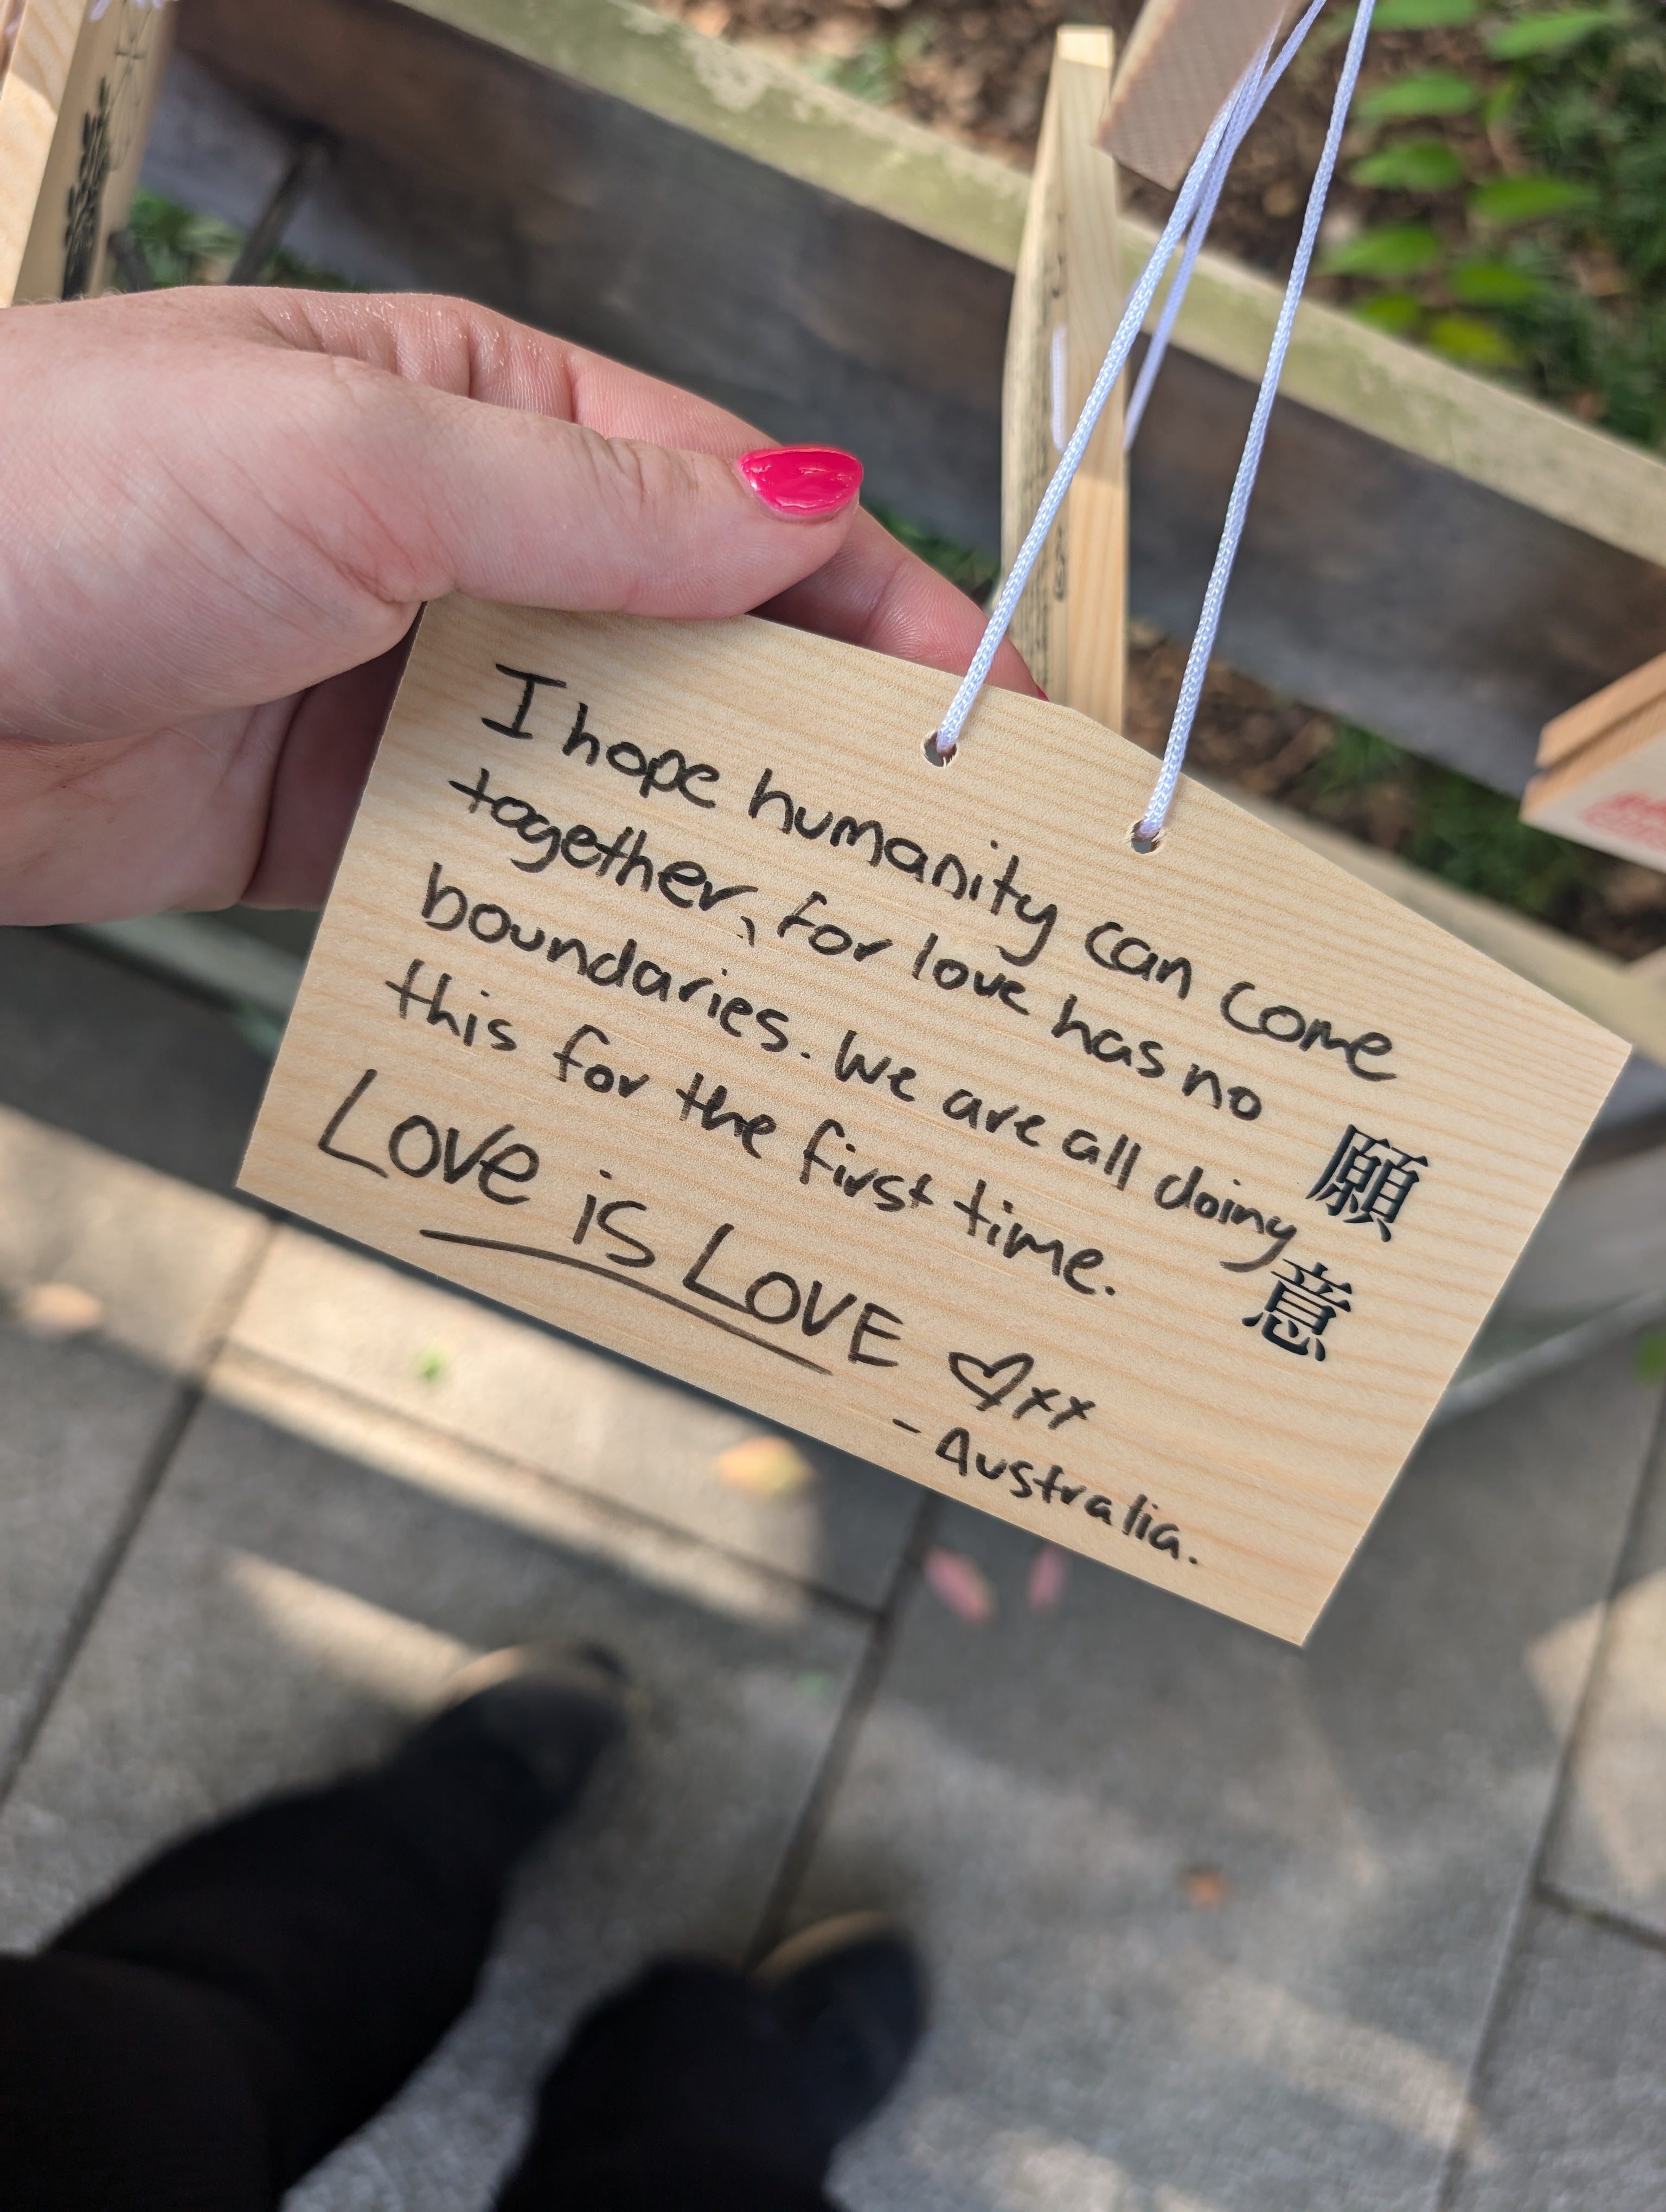 I hope humanity can come
together, for love has no
boundaries. We are all doing
this for the first time.
Love is LOVE ♡xx
- Australia.
願意